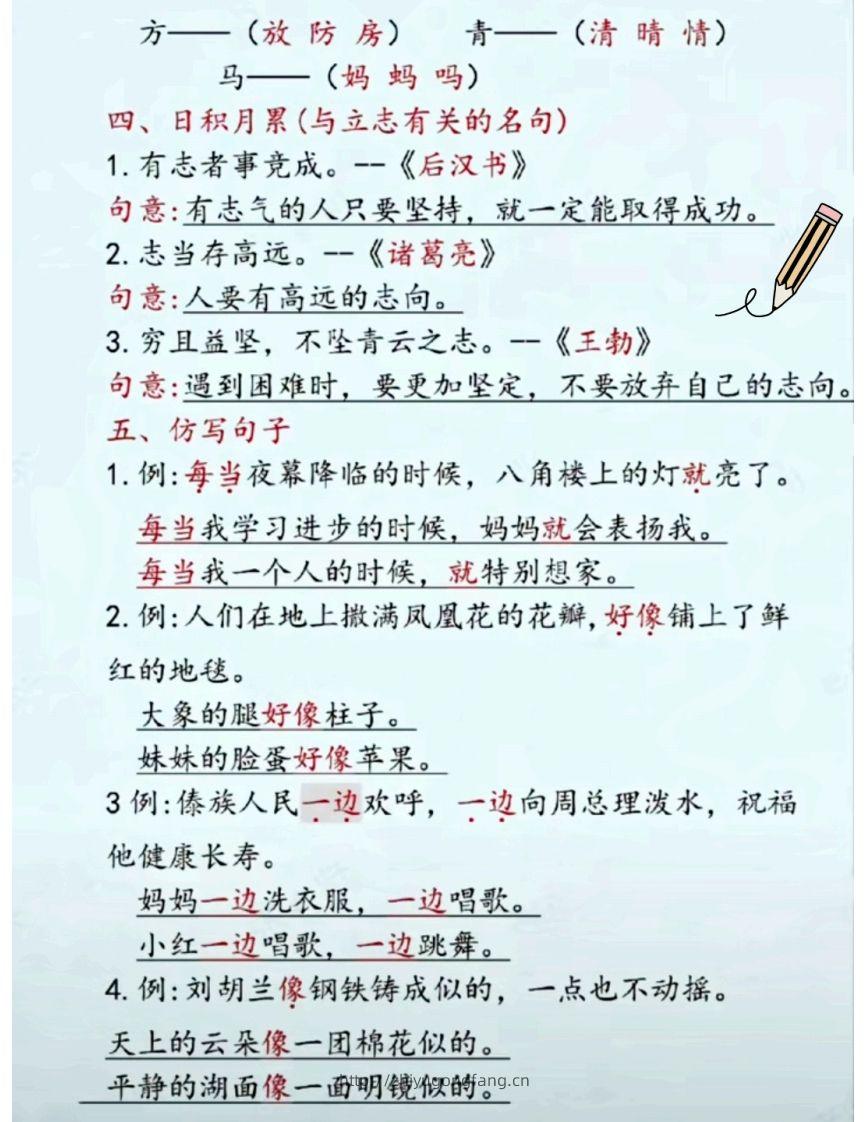 方——（放 防 房） 青——（清 晴 情）
马——（妈 蚂 吗）
四、日积月累(与立志有关的名句)
1.有志者事竟成。--《后汉书》
句意:有志气的人只要坚持，就一定能取得成功。
2.志当存高远。--《诸葛亮》
句意:人要有高远的志向。
3.穷且益坚，不坠青云之志。--《王勃》
句意:遇到困难时，要更加坚定，不要放弃自己的志向。
五、仿写句子
1.例:每当夜幕降临的时候，八角楼上的灯就亮了。
每当我学习进步的时候，妈妈就会表扬我。
每当我一个人的时候，就特别想家。
2.例:人们在地上撒满凤凰花的花瓣,好像铺上了鲜
红的地毯。
大象的腿好像柱子。
妹妹的脸蛋好像苹果。
3例:傣族人民一边欢呼，一边向周总理泼水，祝福
他健康长寿。
妈妈一边洗衣服，一边唱歌。
小红一边唱歌，一边跳舞。
4.例:刘胡兰像钢铁铸成似的，一点也不动摇。
天上的云朵像一团棉花似的。
平静的湖面像一面明镜似的。